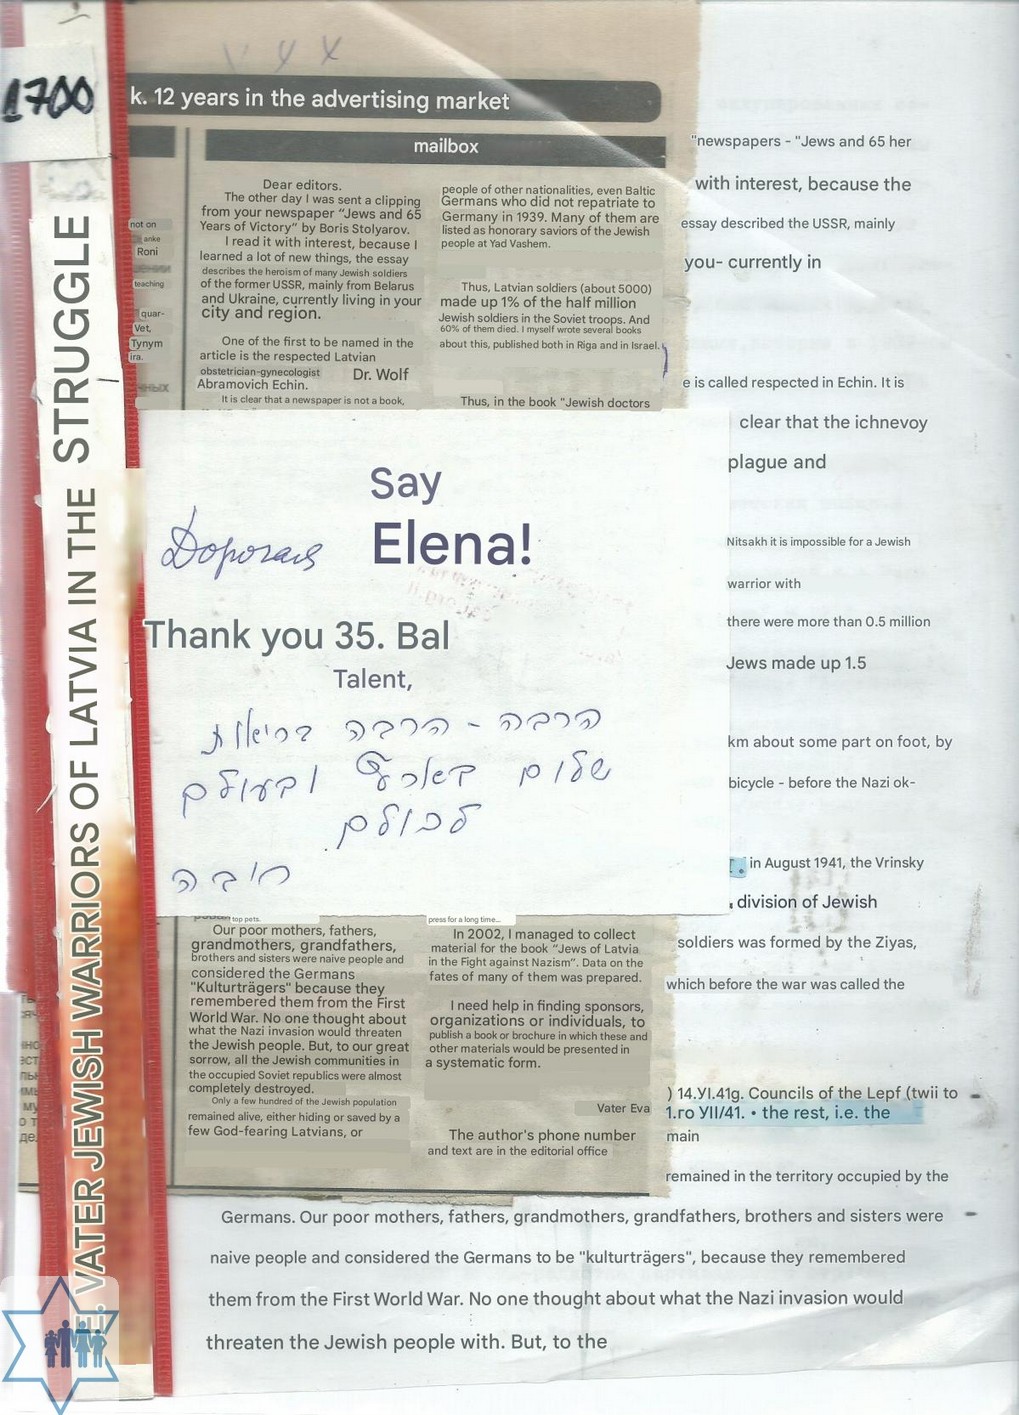 1700
E. VATER JEWISH WARRIORS OF LATVIA IN THE STRUGGLE
k. 12 years in the advertising market
mailbox
not on
anke
Roni
teaching
quar-
Vet,
Tynym
ira.
Dear editors.
The other day I was sent a clipping
from your newspaper “Jews and 65
Years of Victory” by Boris Stolyarov.
I read it with interest, because I
learned a lot of new things, the essay
describes the heroism of many Jewish soldiers
of the former USSR, mainly from Belarus
and Ukraine, currently living in your
city and region.
One of the first to be named in the
article is the respected Latvian
obstetrician-gynecologist Dr. Wolf
Abramovich Echin.
It is clear that a newspaper is not a book,
people of other nationalities, even Baltic
Germans who did not repatriate to
Germany in 1939. Many of them are
listed as honorary saviors of the Jewish
people at Yad Vashem.
Thus, Latvian soldiers (about 5000)
made up 1% of the half million
Jewish soldiers in the Soviet troops. And
60% of them died. I myself wrote several books
about this, published both in Riga and in Israel.
Thus, in the book "Jewish doctors
Say
Дорогая Elena!
Thank you 35. Bal
Talent,
הרבה - הרבה בריאות
שלום בארץ ובעולם
לכולם
חובה
top pets.
Our poor mothers, fathers,
grandmothers, grandfathers,
brothers and sisters were naive people and
considered the Germans
"Kulturträgers" because they
remembered them from the First
World War. No one thought about
what the Nazi invasion would threaten
the Jewish people. But, to our great
sorrow, all the Jewish communities in
the occupied Soviet republics were almost
completely destroyed.
Only a few hundred of the Jewish population
remained alive, either hiding or saved by a
few God-fearing Latvians, or
press for a long time...
In 2002, I managed to collect
material for the book “Jews of Latvia
in the Fight against Nazism”. Data on the
fates of many of them was prepared.
I need help in finding sponsors,
organizations or individuals, to
publish a book or brochure in which these and
other materials would be presented in
a systematic form.
Vater Eva
The author's phone number
and text are in the editorial office
"newspapers - "Jews and 65 her
with interest, because the
essay described the USSR, mainly
you- currently in
e is called respected in Echin. It is
clear that the ichnevoy
plague and
Nitsakh it is impossible for a Jewish
warrior with
there were more than 0.5 million
Jews made up 1.5
km about some part on foot, by
bicycle - before the Nazi ok-
in August 1941, the Vrinsky
division of Jewish
soldiers was formed by the Ziyas,
which before the war was called the
) 14.УІ.41g. Councils of the Lepf (twii to
1.го УІІ/41. • the rest, i.e. the
main
remained in the territory occupied by the
Germans. Our poor mothers, fathers, grandmothers, grandfathers, brothers and sisters were
naive people and considered the Germans to be "kulturträgers", because they remembered
them from the First World War. No one thought about what the Nazi invasion would
threaten the Jewish people with. But, to the